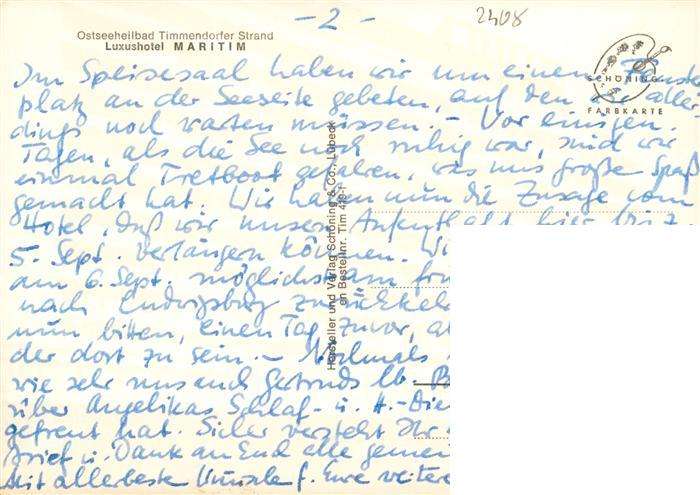 - 2 -
2408
Ostseeheilbad Timmendorfer Strand
Luxushotel MARITIM
SCHÖNING
FARBKARTE
Im Speisesaal haben wir um einen Fenster
platz an der Seeseite gebeten, auf den wir aller
dings noch warten müssen. - Vor einigen
Tagen, als die See noch ruhig war, sind wir
einmal Tretboot gefahren, was uns große Spaß
gemacht hat. Wir haben nun die Zusage vom
Hotel, daß wir unseren Aufenthalt hier bis z.
5. Sept. verlängern können. Wi
am 6. Sept. möglichst am
nach Ludwigsburg zurückkeh
nun bitten, einen Tag zuvor, a
der dort zu sein. - Nochmals
wie sehr uns auch Gertruds lb.
über Angelikas Schlaf- u. H.-Die
gefreut hat. Sicher versteht Ihr
Brief u. Dank an Euch alle gemei
Mit allerbesten Wünschen f. Eure weitere
Hersteller und Verlag Schöning & Co., Lübeck
en Bestellnr. Tim 419-f